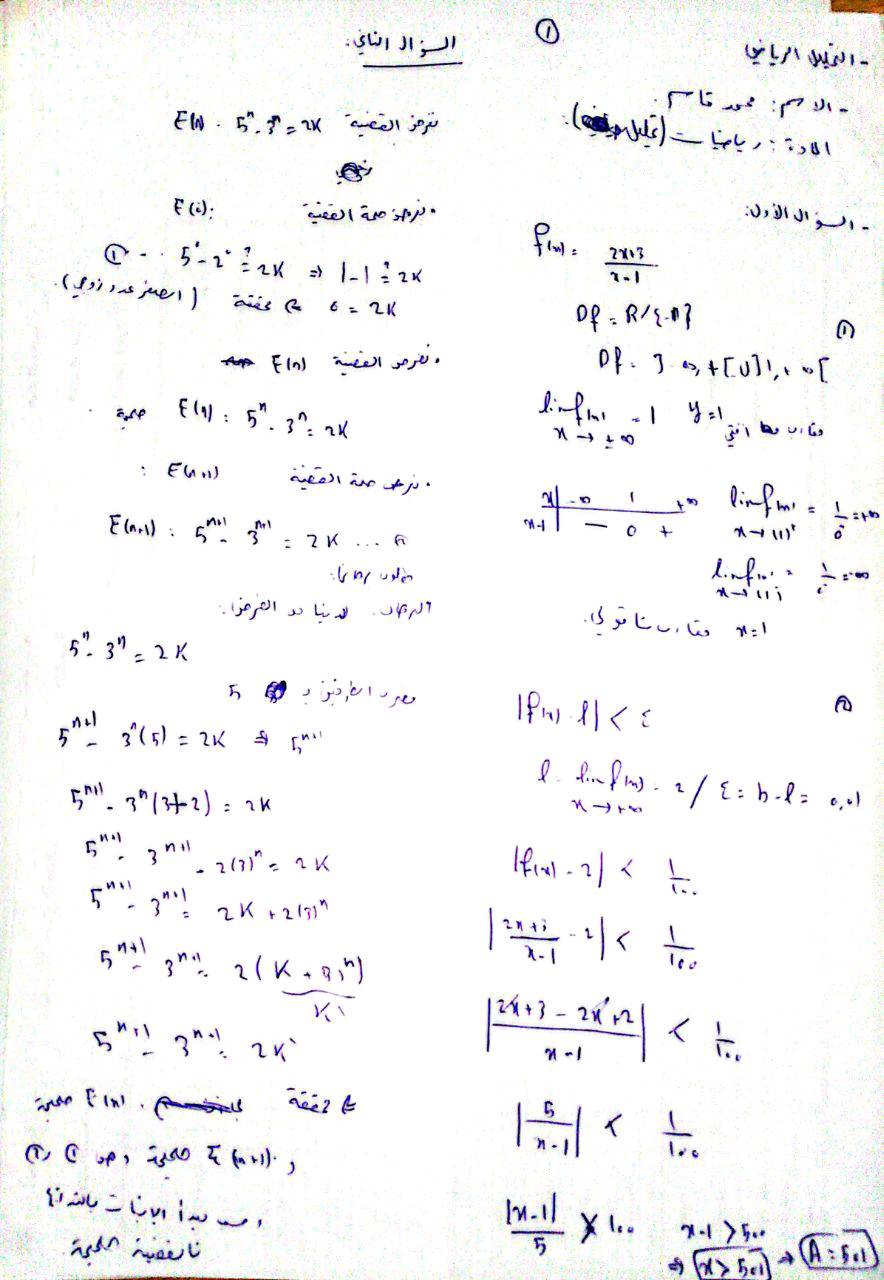 ①
- التحليل الرياضي
- الاسم: محمود قاسم
المادة: رياضيات (تحليل
- السؤال الأول:
f(x) = \frac{2x+3}{x-1}
Df = R/{-1}
①
Df = ]-∞, +[U]1, +∞[
lim f(x) = 1 y=1 مقارب افقي
x→±∞
x | -∞ 1 +∞
x-1 | - 0 +
lim f(x) = \frac{1}{0} = +∞
x→(1)⁺
lim f(x) = \frac{1}{0} = -∞
x→(1)⁻
x=1 مقارب شاقولي.
②
|f(x) - l| < ε
l = lim f(x) = 2 / ε = b - l = 0,01
x→+∞
|f(x) - 2| < \frac{1}{100}
|\frac{2x+3}{x-1} - 2| < \frac{1}{100}
|\frac{2x+3-2x+2}{x-1}| < \frac{1}{100}
|\frac{5}{x-1}| < \frac{1}{100}
\frac{|x-1|}{5} > 100 x-1 > 500
⇒ x > 501 → A = 501
السؤال الثاني:
نفرض القضية E(n) . 5ⁿ - 3ⁿ = 2K
• نفرض صحة القضية E(0):
5⁰ - 2⁰ ?= 2K ⇒ 1-1 ?= 2K ... ①
0 = 2K محققة (الصفر عدد زوجي).
• نفرض القضية E(n)
E(n) : 5ⁿ - 3ⁿ = 2K صحيحة
• نفرض صحة القضية E(n+1) :
E(n+1) : 5ⁿ⁺¹ - 3ⁿ⁺¹ = 2K ... ②
البرهان. لدينا من الفرض:
5ⁿ - 3ⁿ = 2K
نضرب الطرفين بـ 5
5ⁿ⁺¹ - 3ⁿ(5) = 2K ⇒ 5ⁿ⁺¹
5ⁿ⁺¹ - 3ⁿ(3+2) = 2K
5ⁿ⁺¹ - 3ⁿ⁺¹ - 2(3)ⁿ = 2K
5ⁿ⁺¹ - 3ⁿ⁺¹ = 2K + 2(3)ⁿ
5ⁿ⁺¹ - 3ⁿ⁺¹ = 2(K + 3ⁿ)
K'
5ⁿ⁺¹ - 3ⁿ⁺¹ = 2K'
⇒ محققة . E(n) صحيحة
و E(n+1) صحيحة ومن ① و ②
ومن مبدأ الإثبات بالتدريج
فالقضية صحيحة